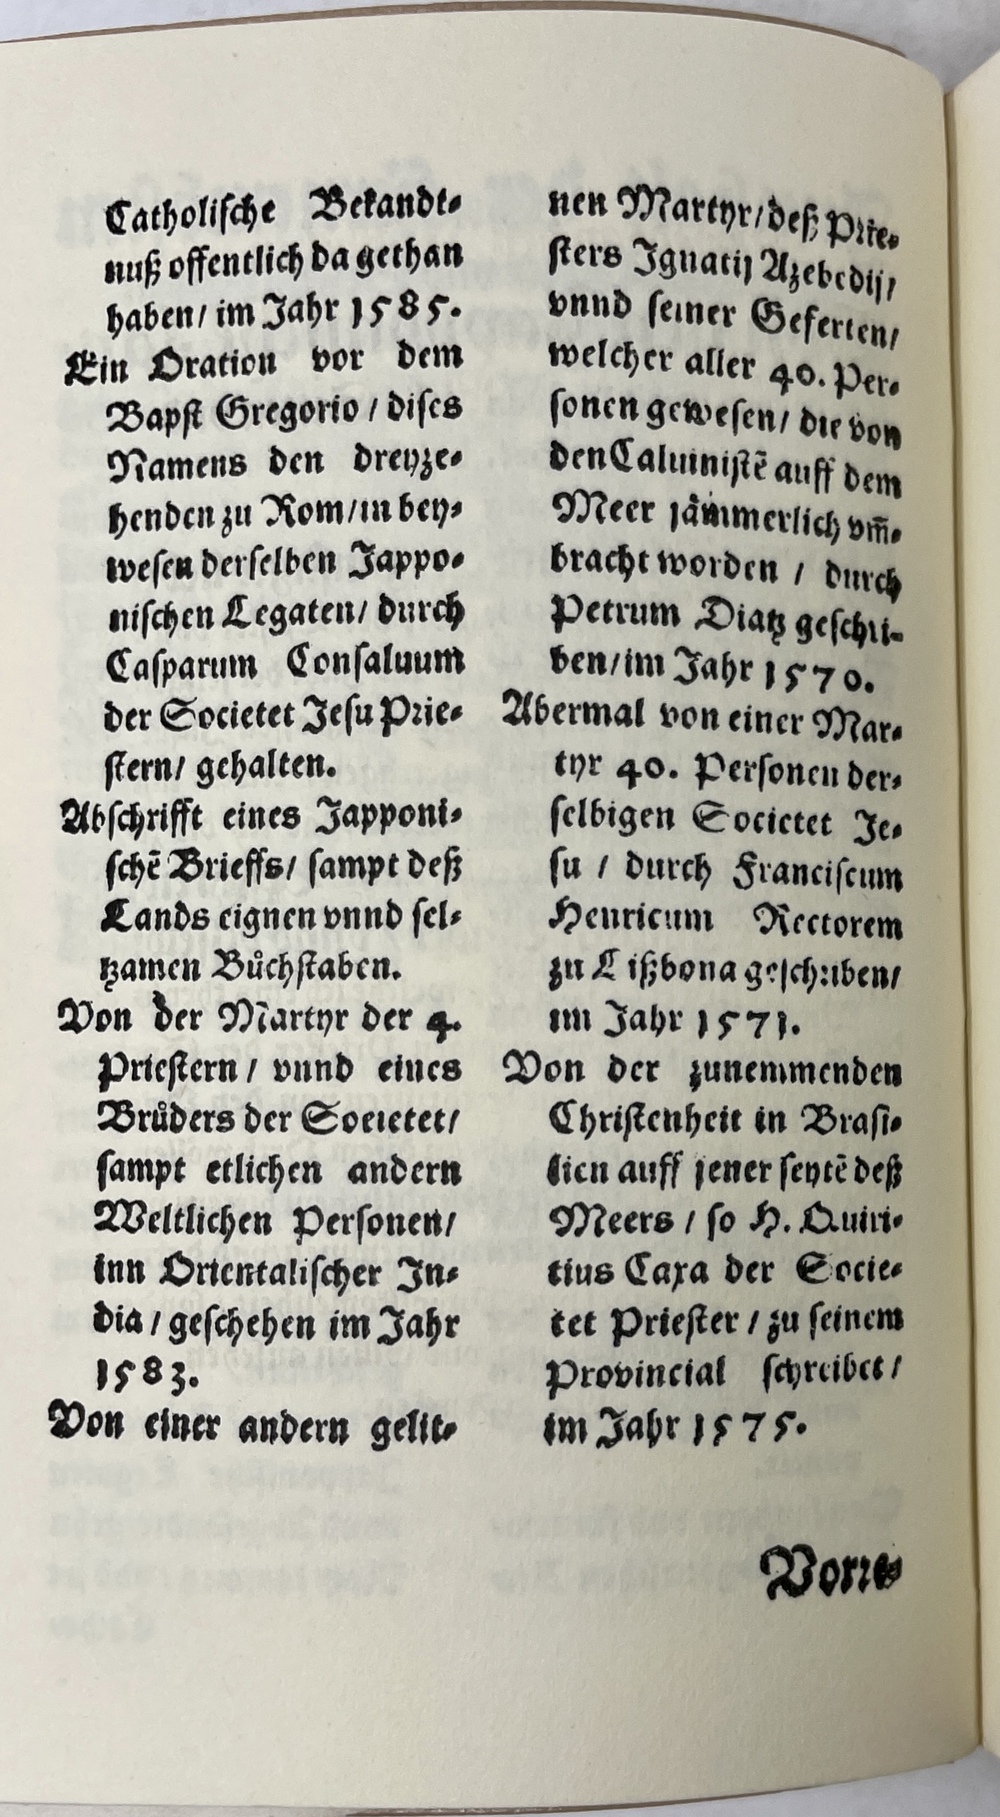 Catholische Bekandt-
nuß offentlich da gethan
haben/ im Jahr 1585.
Ein Oration vor dem
Bapst Gregorio / dises
Namens den dreyze-
henden zu Rom/in bey-
wesen derselben Jappo-
nischen Legaten/ durch
Casparum Consaluum
der Societet Jesu Prie-
stern/ gehalten.
Abschrifft eines Japponi-
schē Brieffs/ sampt deß
Lands eignen vnnd sel-
tzamen Bůchstaben.
Von der Martyr der 4.
Priestern / vnnd eines
Brůders der Societet/
sampt etlichen andern
Weltlichen Personen/
inn Orientalischer In-
dia / geschehen im Jahr
1583.
Von einer andern gelit-
nen Martyr/deß Prie-
sters Ignatij Azebedij/
vnnd seiner Geferten/
welcher aller 40. Per-
sonen gewesen/ die von
den Caluinistē auff dem
Meer jämmerlich vm̄-
bracht worden / durch
Petrum Diatz geschri-
ben/im Jahr 1570.
Abermal von einer Mar-
tyr 40. Personen der-
selbigen Societet Je-
su / durch Franciscum
Henricum Rectorem
zu Lißbona geschriben/
im Jahr 1571.
Von der zunemmenden
Christenheit in Brasi-
lien auff jener seytē deß
Meers / so H. Quiri-
tius Caxa der Socie-
tet Priester / zu seinem
Provincial schreibet/
im Jahr 1575.
Vorre-